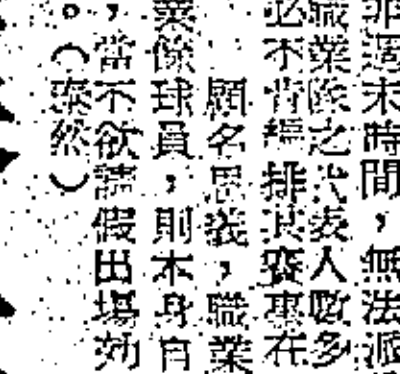 非週末時間，無法派
職業隊之代表人數多
必不肯編排其賽事在
顧名思義，職業
業餘球員，則本身自
，當不欲請假出場効
。（泰然）